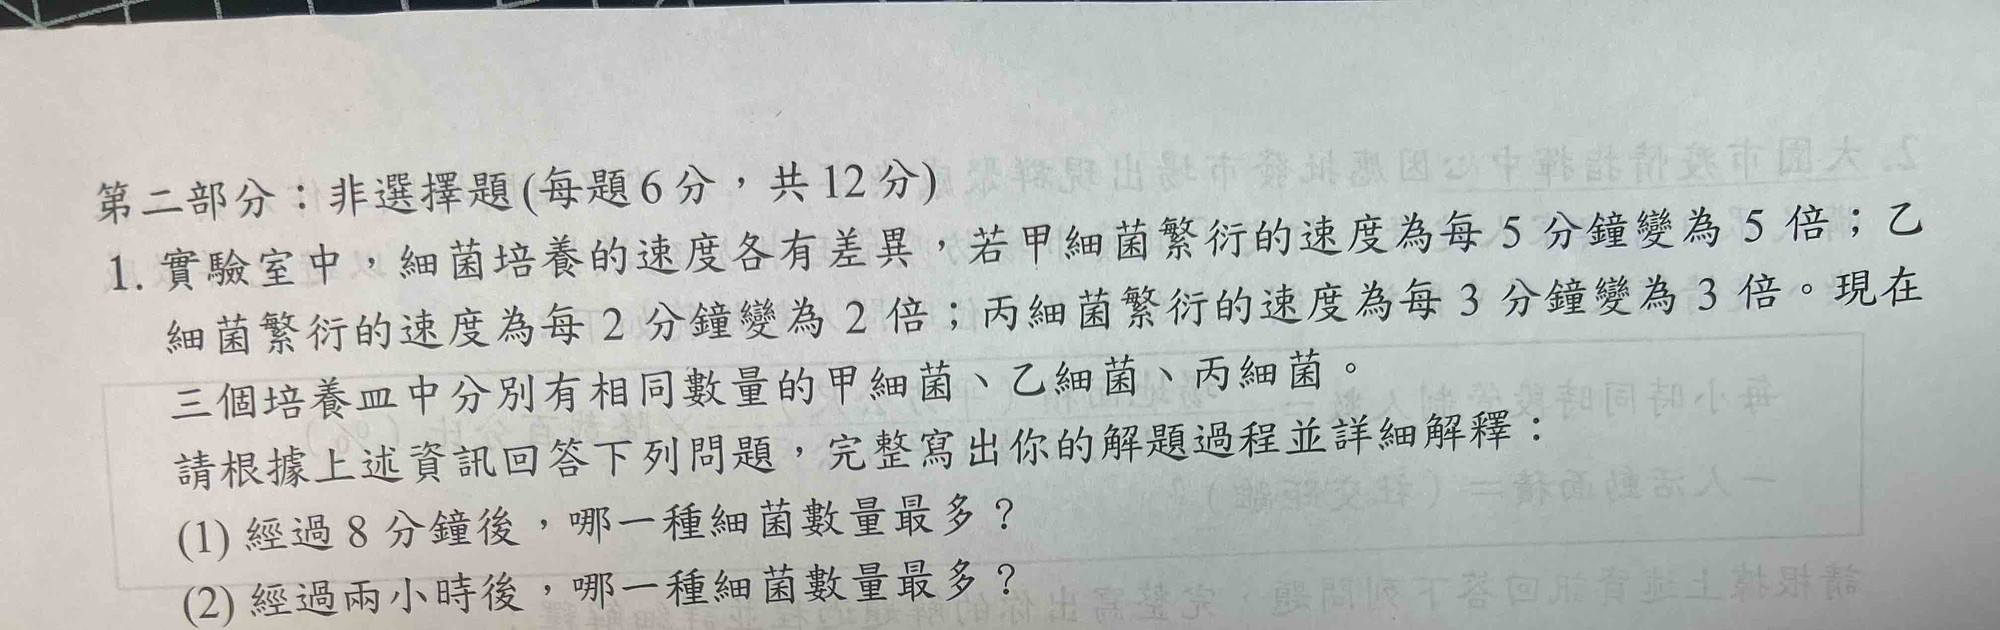 第二部分：非選擇題(每題6分，共12分)
1. 實驗室中，細菌培養的速度各有差異，若甲細菌繁衍的速度為每 5 分鐘變為 5 倍；乙
細菌繁衍的速度為每 2 分鐘變為 2 倍；丙細菌繁衍的速度為每 3 分鐘變為 3 倍。現在
三個培養皿中分別有相同數量的甲細菌、乙細菌、丙細菌。
請根據上述資訊回答下列問題，完整寫出你的解題過程並詳細解釋：
(1) 經過 8 分鐘後，哪一種細菌數量最多？
(2) 經過兩小時後，哪一種細菌數量最多？